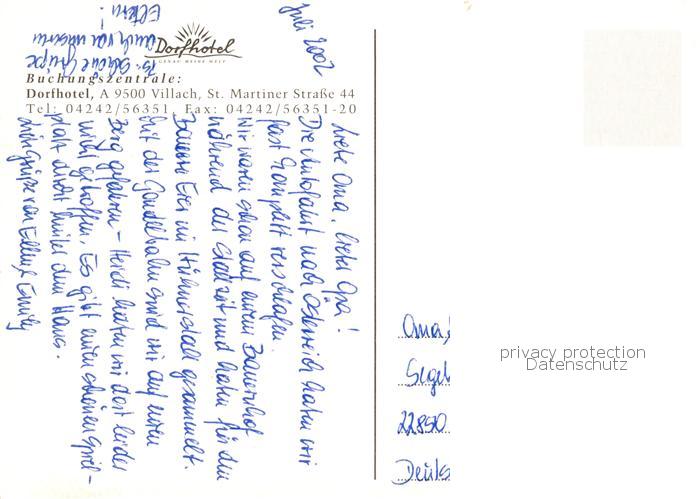 Dorfhotel
GENAU MEINE WELT
Buchungszentrale:
Dorfhotel, A 9500 Villach, St. Martiner Straße 44
Tel: 04242/56351, Fax: 04242/56351-20
Juli 2002
Liebe Oma, lieber Opa!
Die Autofahrt nach Österreich haben wir
fast komplett verschlafen.
Wir waren schon auf einem Bauernhof
während der Stallzeit und haben für den
Bauern Eier im Hühnerstall gesammelt.
Mit der Gondelbahn sind wir auf einen
Berg gefahren - Heidi haben wir dort leider
nicht getroffen. Es gibt einen schönen Spiel-
platz direkt hinter dem Haus.
Grüße von Emily
PS: Schöne Grüße
auch von unseren
Eltern!
Oma,
Segel
22850
Deuts
privacy protection
Datenschutz